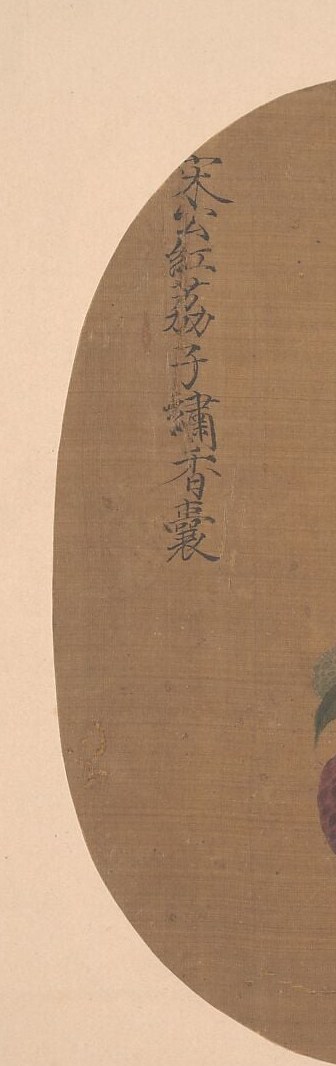 宋公紅荔子繡香囊